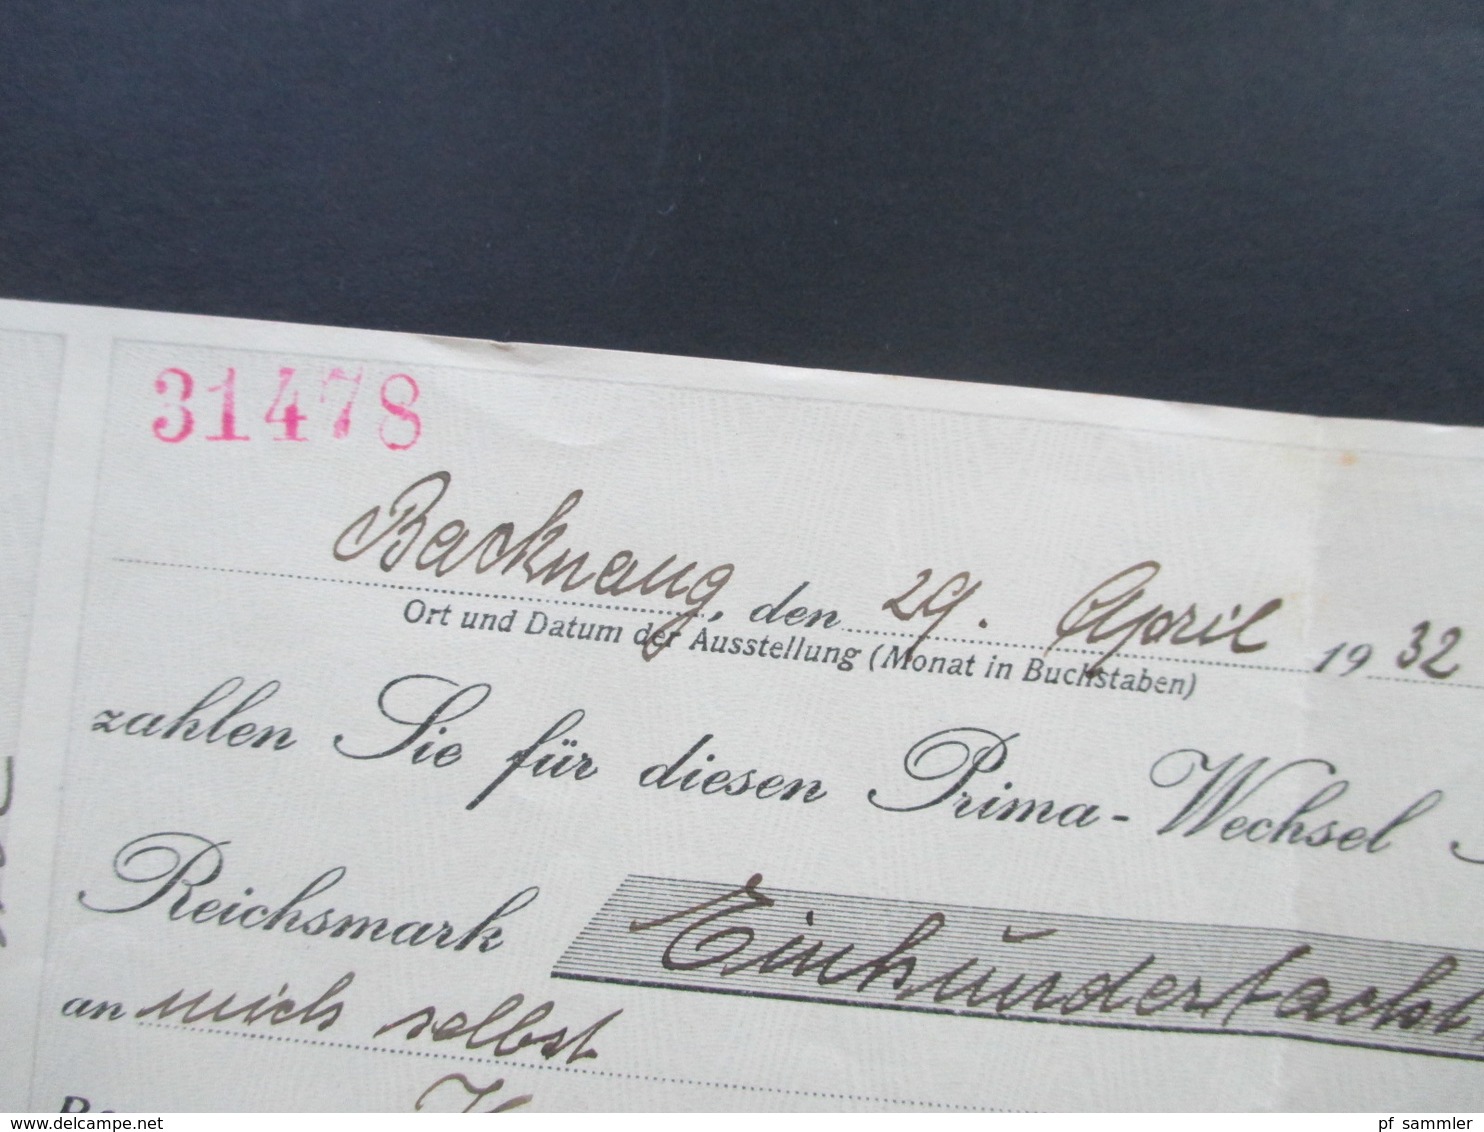 31478
Backnang, den 29. April 1932
Ort und Datum der Ausstellung (Monat in Buchstaben)
zahlen Sie für diesen Prima-Wechsel
Reichsmark Einhundertacht
an mich selbst
www.delcampe.net
pf_sammler